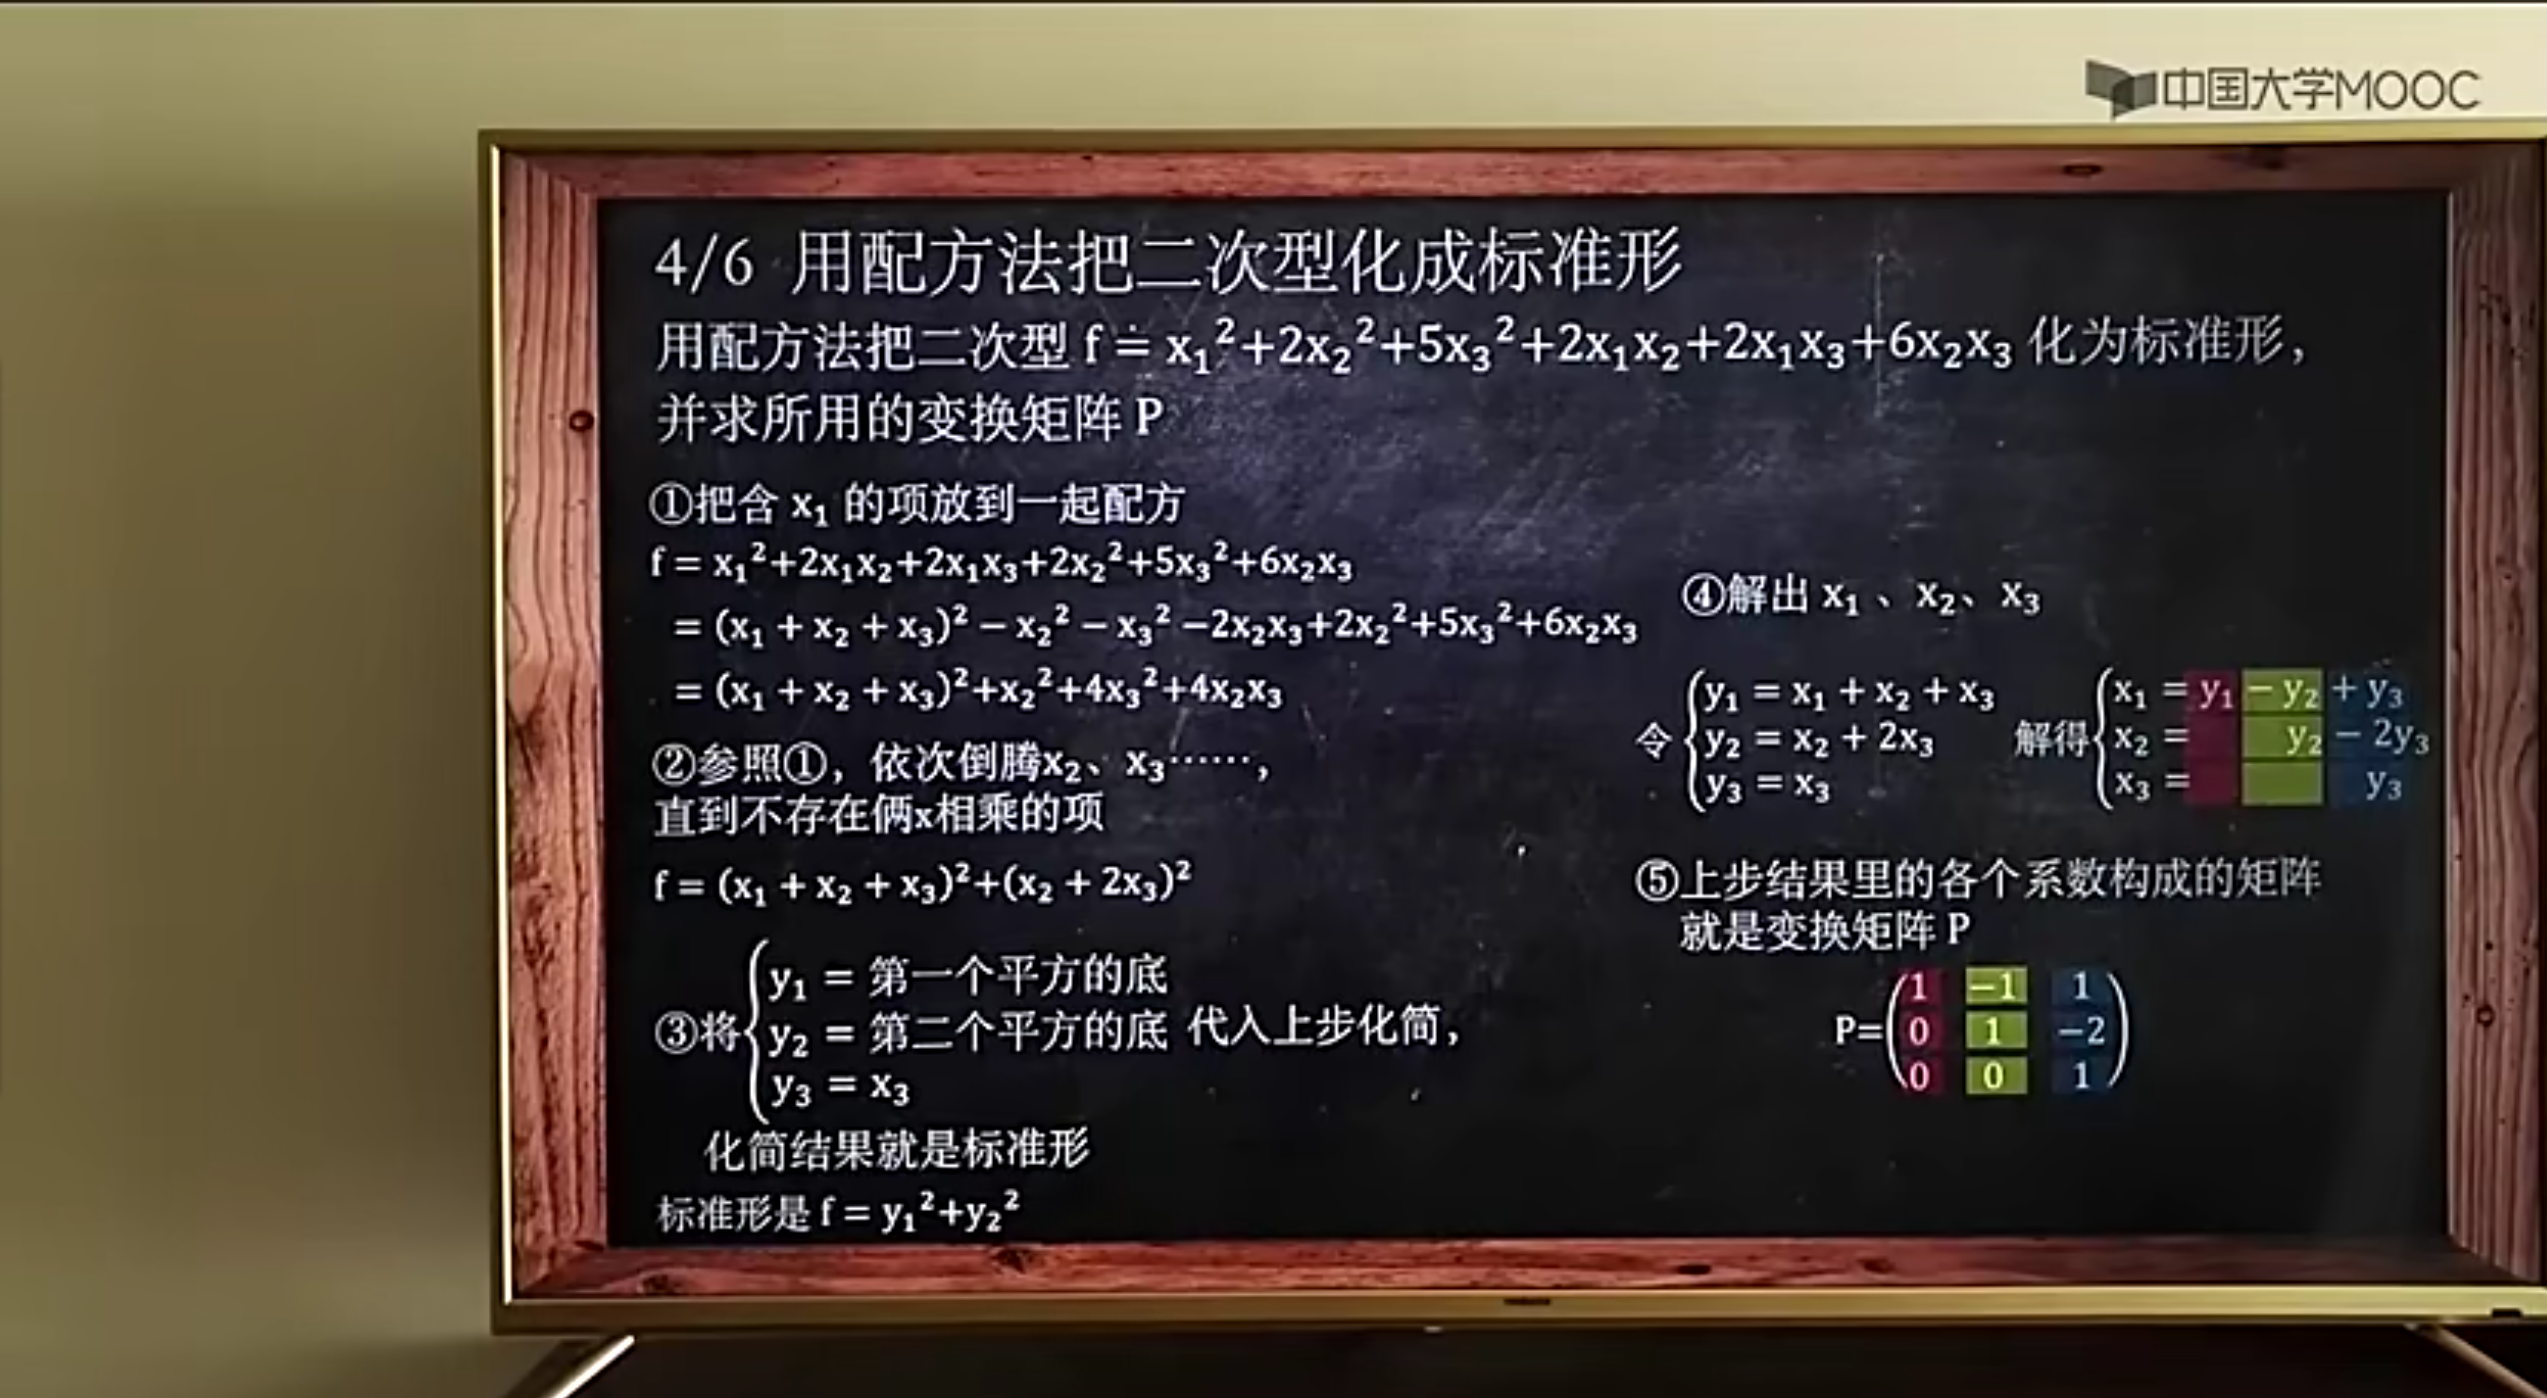 中国大学MOOC
4/6 用配方法把二次型化成标准形
用配方法把二次型 f = x₁²+2x₂²+5x₃²+2x₁x₂+2x₁x₃+6x₂x₃ 化为标准形，
并求所用的变换矩阵 P
①把含 x₁ 的项放到一起配方
f = x₁²+2x₁x₂+2x₁x₃+2x₂²+5x₃²+6x₂x₃
= (x₁ + x₂ + x₃)² − x₂² − x₃² −2x₂x₃+2x₂²+5x₃²+6x₂x₃
= (x₁ + x₂ + x₃)²+x₂²+4x₃²+4x₂x₃
②参照①，依次倒腾x₂、x₃……，
直到不存在俩x相乘的项
f = (x₁ + x₂ + x₃)²+(x₂ + 2x₃)²
y₁ = 第一个平方的底
③将{y₂ = 第二个平方的底 代入上步化简，
y₃ = x₃
化简结果就是标准形
标准形是 f = y₁²+y₂²
④解出 x₁ 、x₂、x₃
y₁ = x₁ + x₂ + x₃
令{y₂ = x₂ + 2x₃
y₃ = x₃
x₁ = y₁ − y₂ + y₃
解得{x₂ = y₂ − 2y₃
x₃ = y₃
⑤上步结果里的各个系数构成的矩阵
就是变换矩阵 P
1 −1 1
P=(0 1 −2)
0 0 1